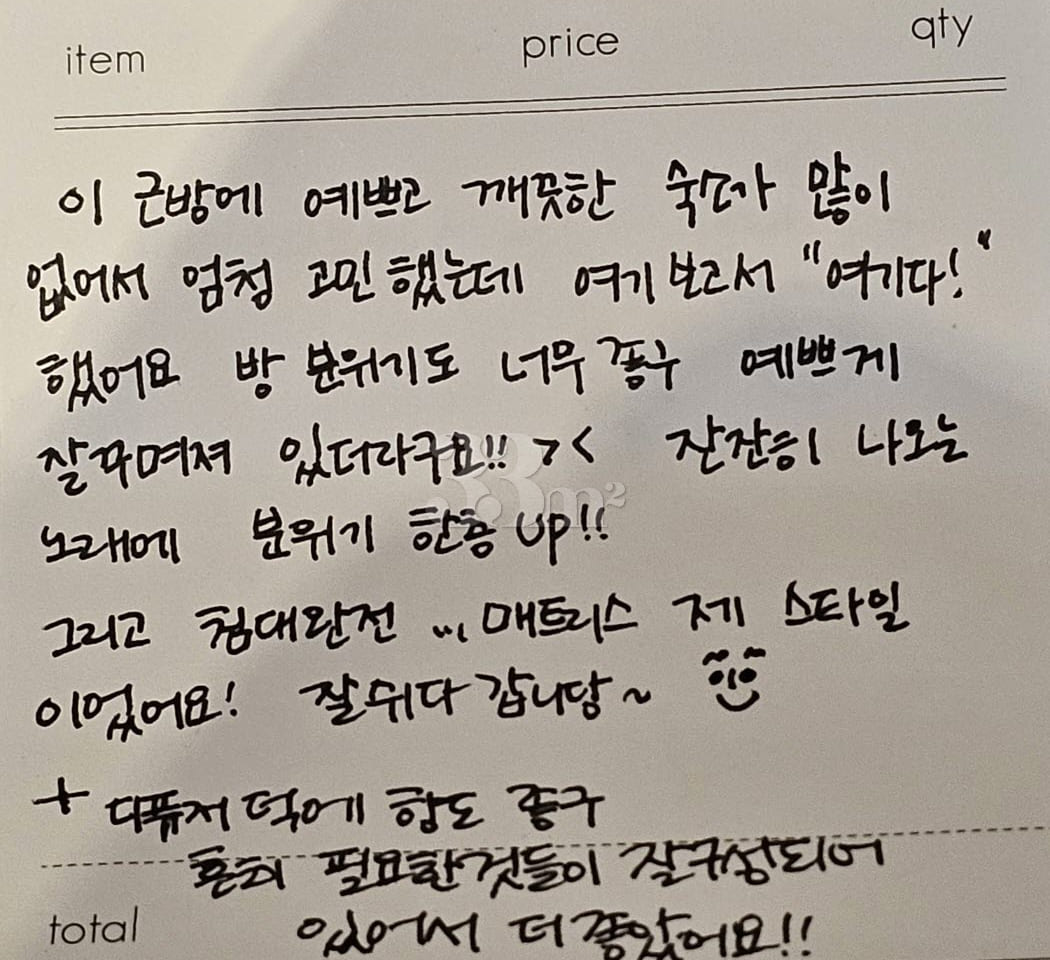 item price qty
이 근방에 예쁘고 깨끗한 숙소가 많이
없어서 엄청 고민했는데 여기보고서 "여기다!"
했어요 방 분위기도 너무 좋구 예쁘게
잘꾸며져 있더라구요!! >< 잔잔히 나오는
33m²
노래에 분위기 한층 up!!
그리고 침대완전 ... 매트리스 제 스타일
이었어요! 잘쉬다 갑니당~
+ 디퓨저 덕에 향도 좋구
필요한것들이 잘구성되어
total 있어서 더 좋았어요!!